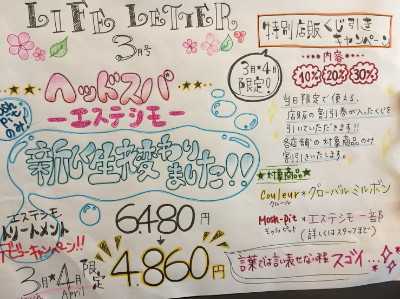 LIFE LETTER
3月号
特別店販くじ引き
キャンペーン
3月*4月
限定!
内容
10% 20% 30%
当日限定で使える、
店販の割引券が入ったくじを
引いていただきます!!
各店舗の対象商品のみ
割引されます。
ヘッドスパ
ーエステシモー
新しく生まれ変わり
ました!!
★対象商品★
Couleur*グローバルミルボン
クルール
Mosh-pit*エステシモ一部
モッシュピット(詳しくはスタッフまで)
エステシモ
トリートメント
デビューキャンペーン!!
3月*4月 限定
April
6480円
4.860円
言葉では言い表せない程 スゴイ...